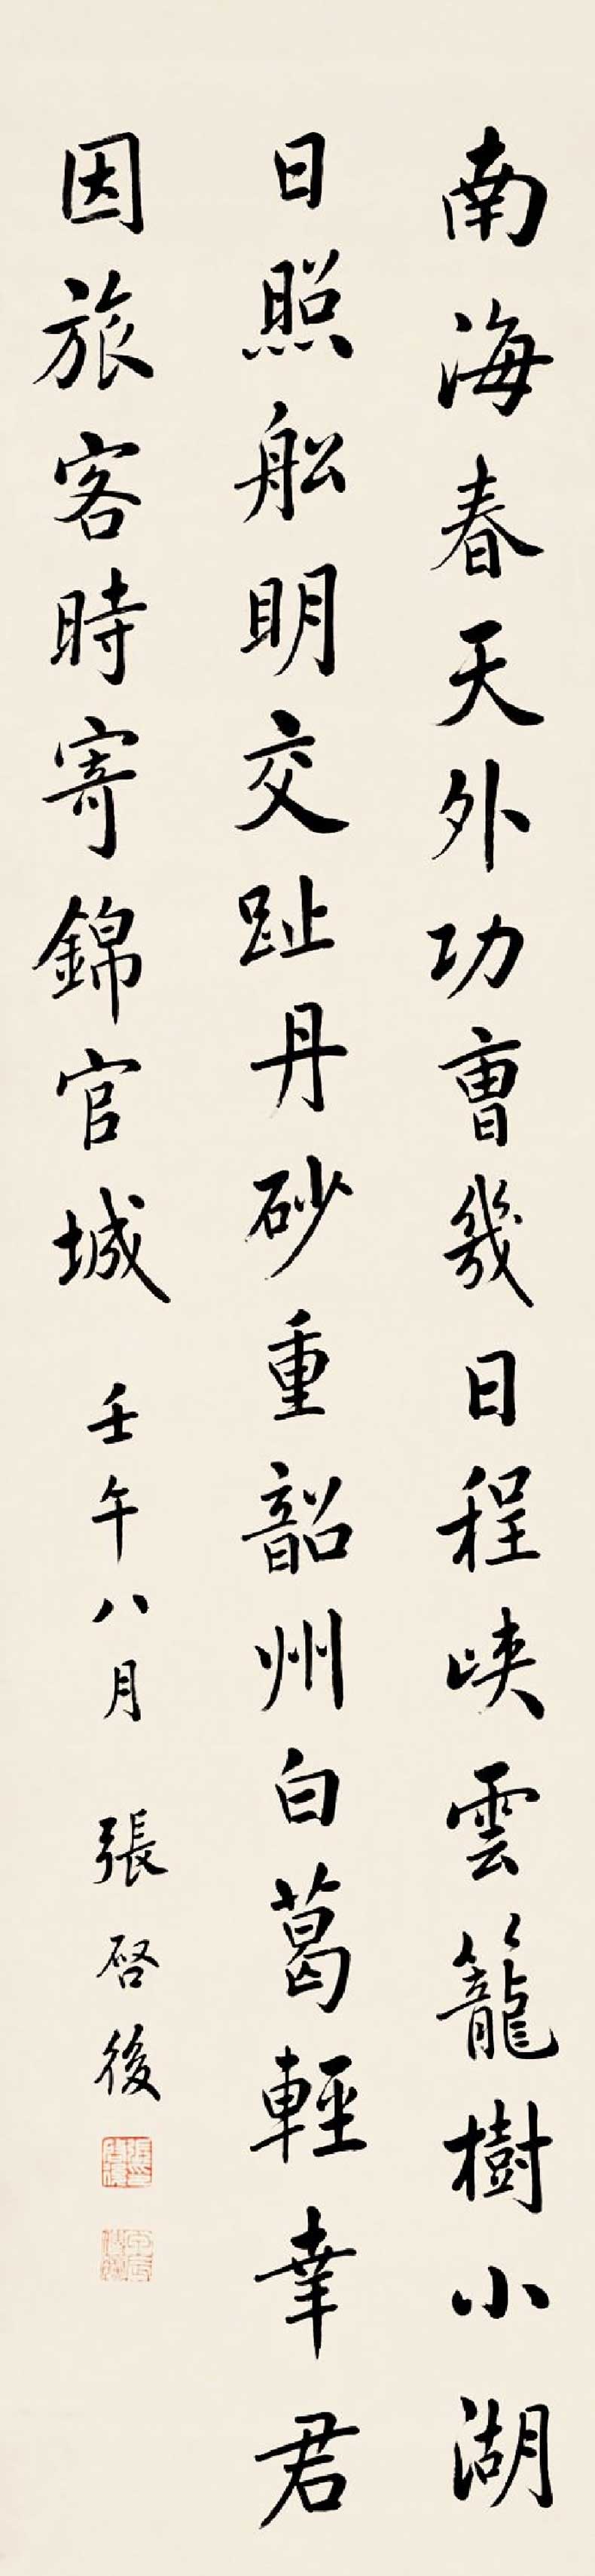 南海春天外功曹幾日程峽雲籠樹小湖
日照舩明交趾丹砂重韶州白葛輕幸君
因旅客時寄錦官城
壬午八月 張啓後